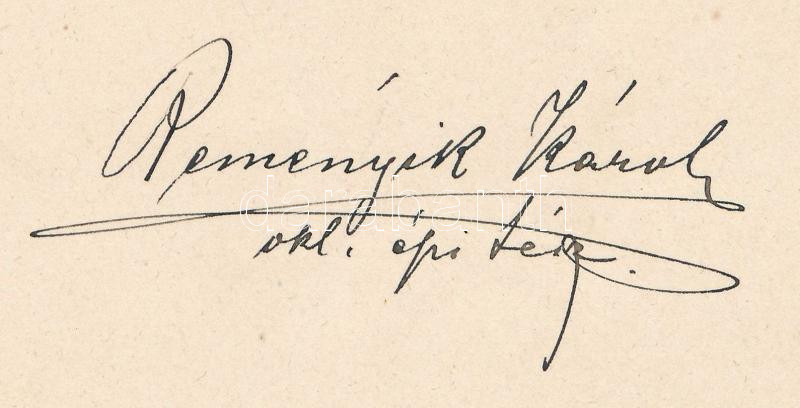 Reményik Károly
okl. építész.
darabanth